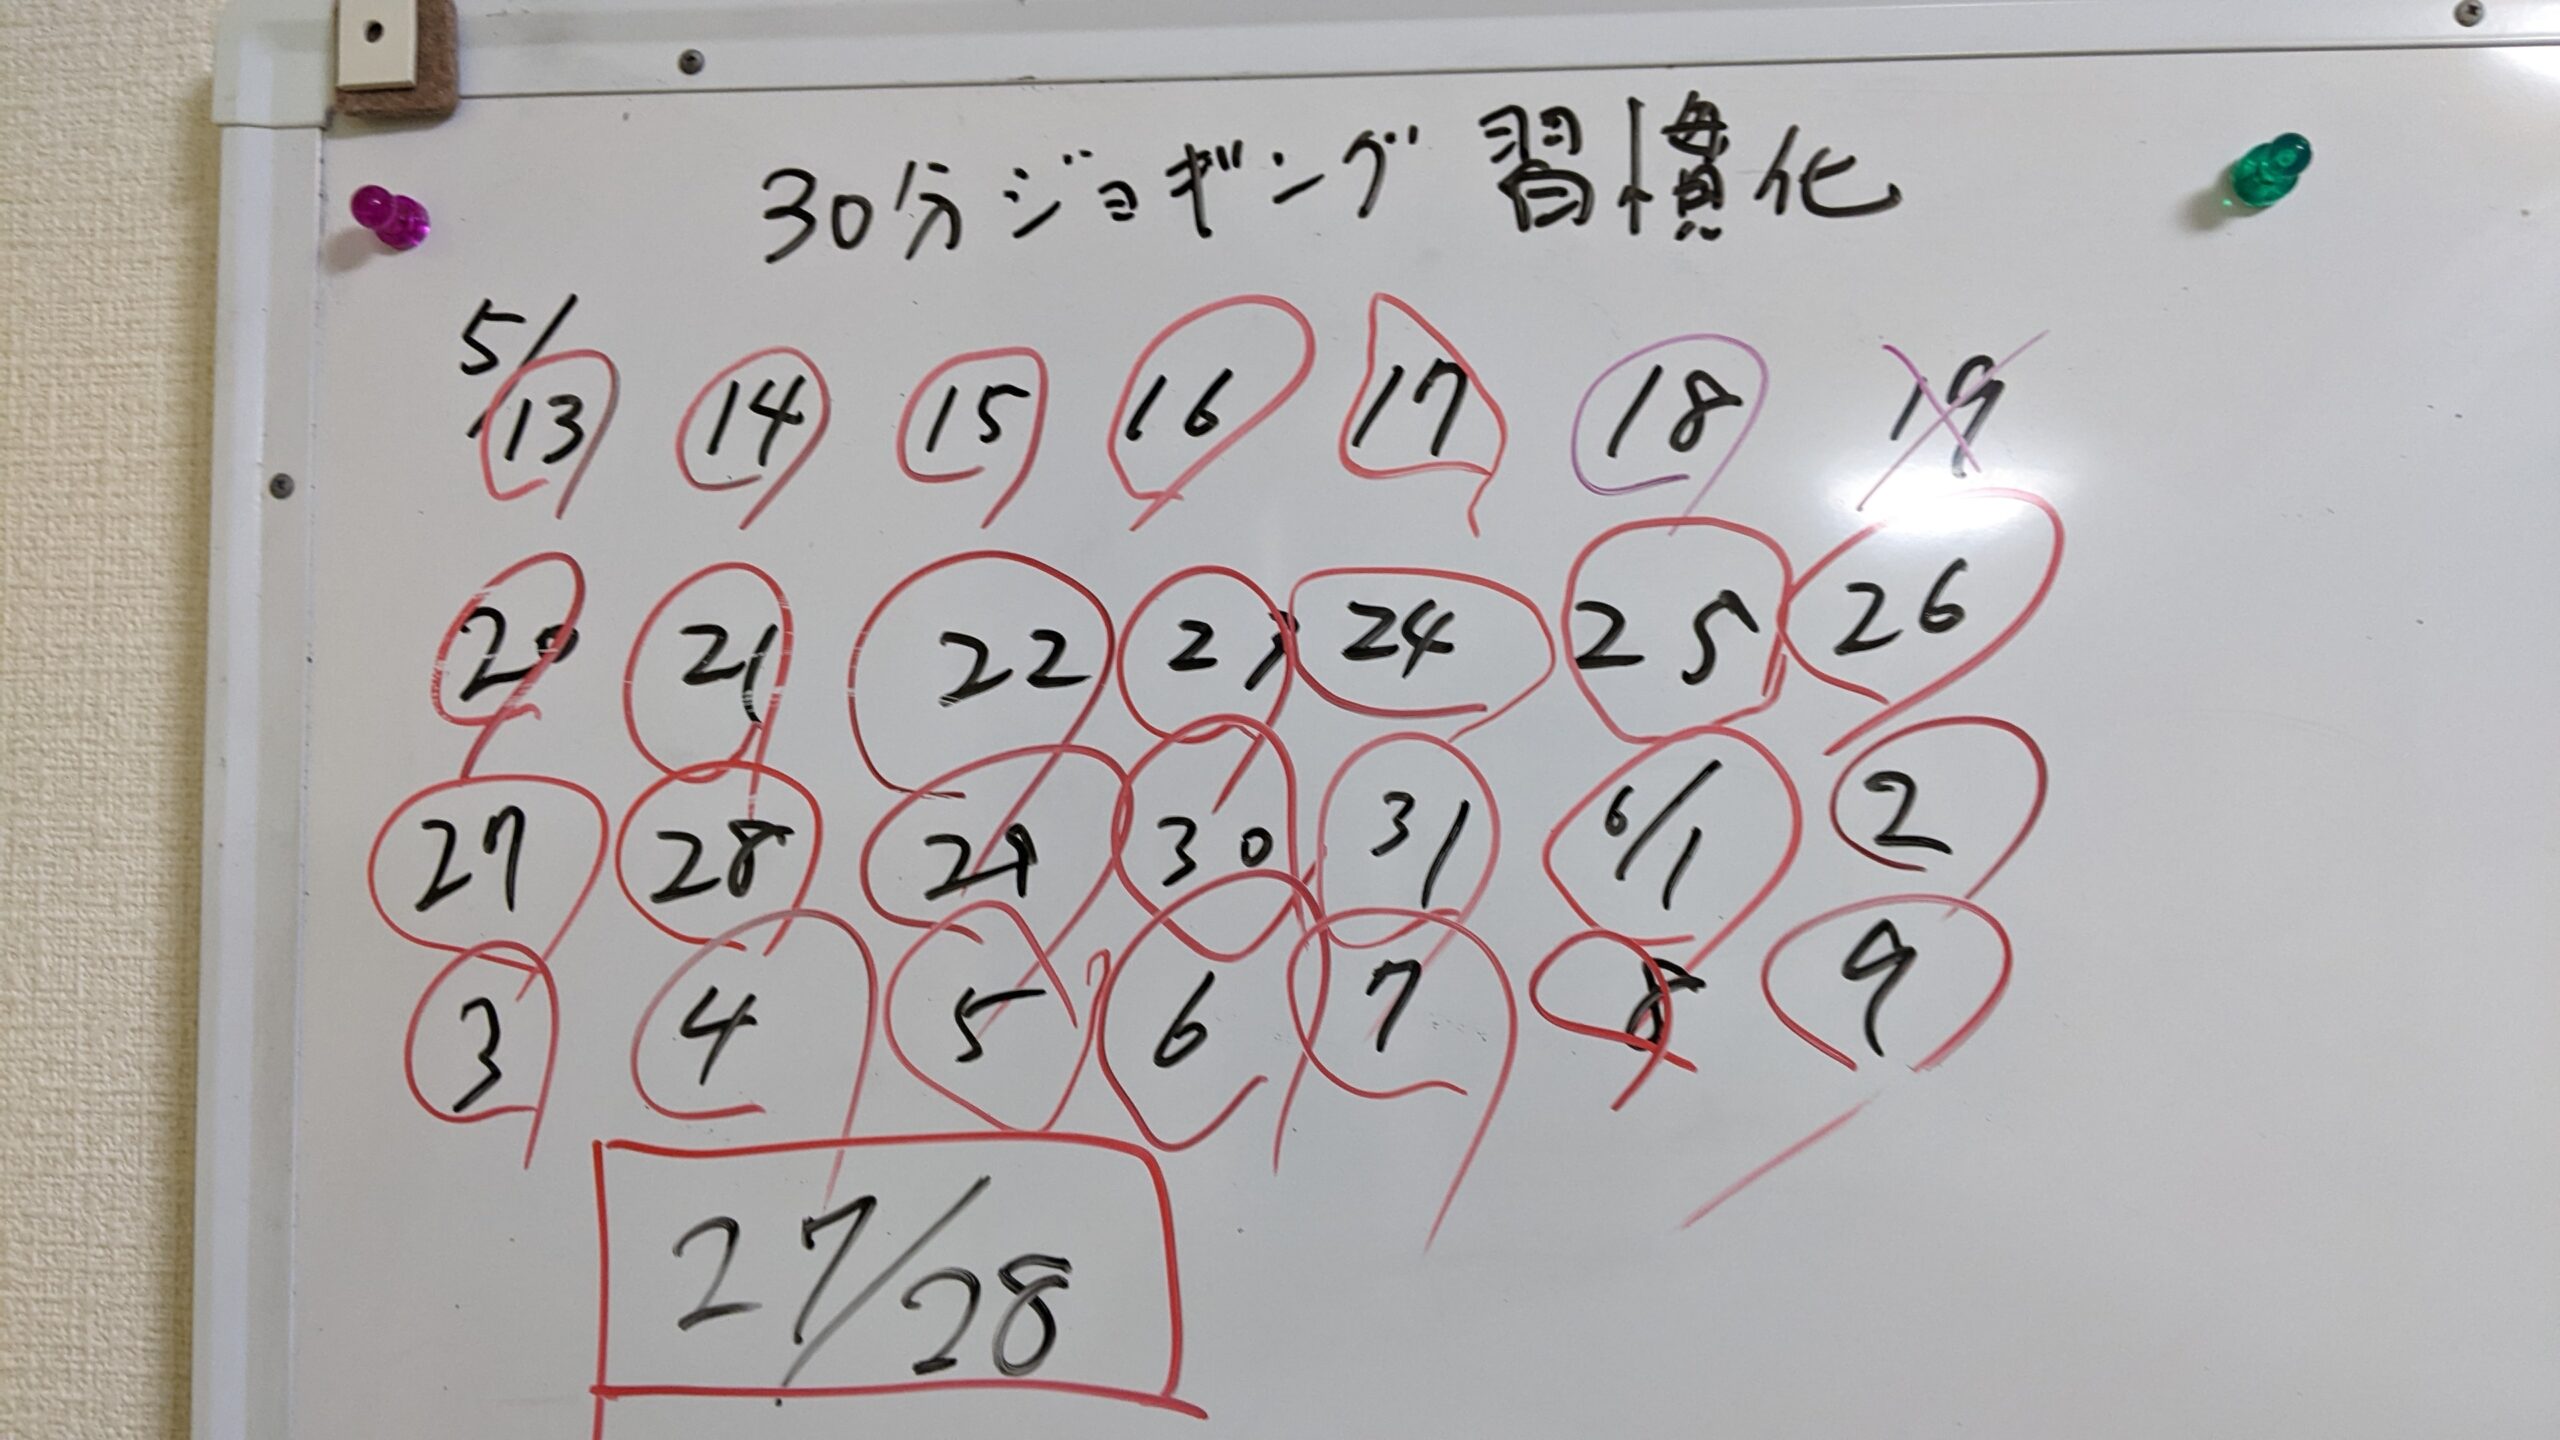 30分ジョギング習慣化
5/13 14 15 16 17 18 19
20 21 22 23 24 25 26
27 28 29 30 31 6/1 2
3 4 5 6 7 8 9
27/28